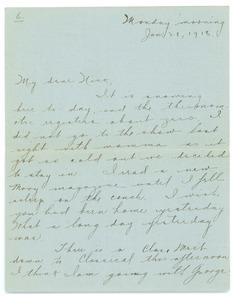 6
Monday morning
Jan 21, 1918.
My dear Nina,
It is snowing
here to day and the thermom-
eter registers about zero. I
did not go to the show last
night with mamma as it
got so cold out we decided
to stay in. I read a new
Movy magazine until I fell
asleep on the couch. I wish
you had been home yesterday
What a long day yesterday
was.
There is a Class Meet
down to Classical this afternoon
I think I am going with George